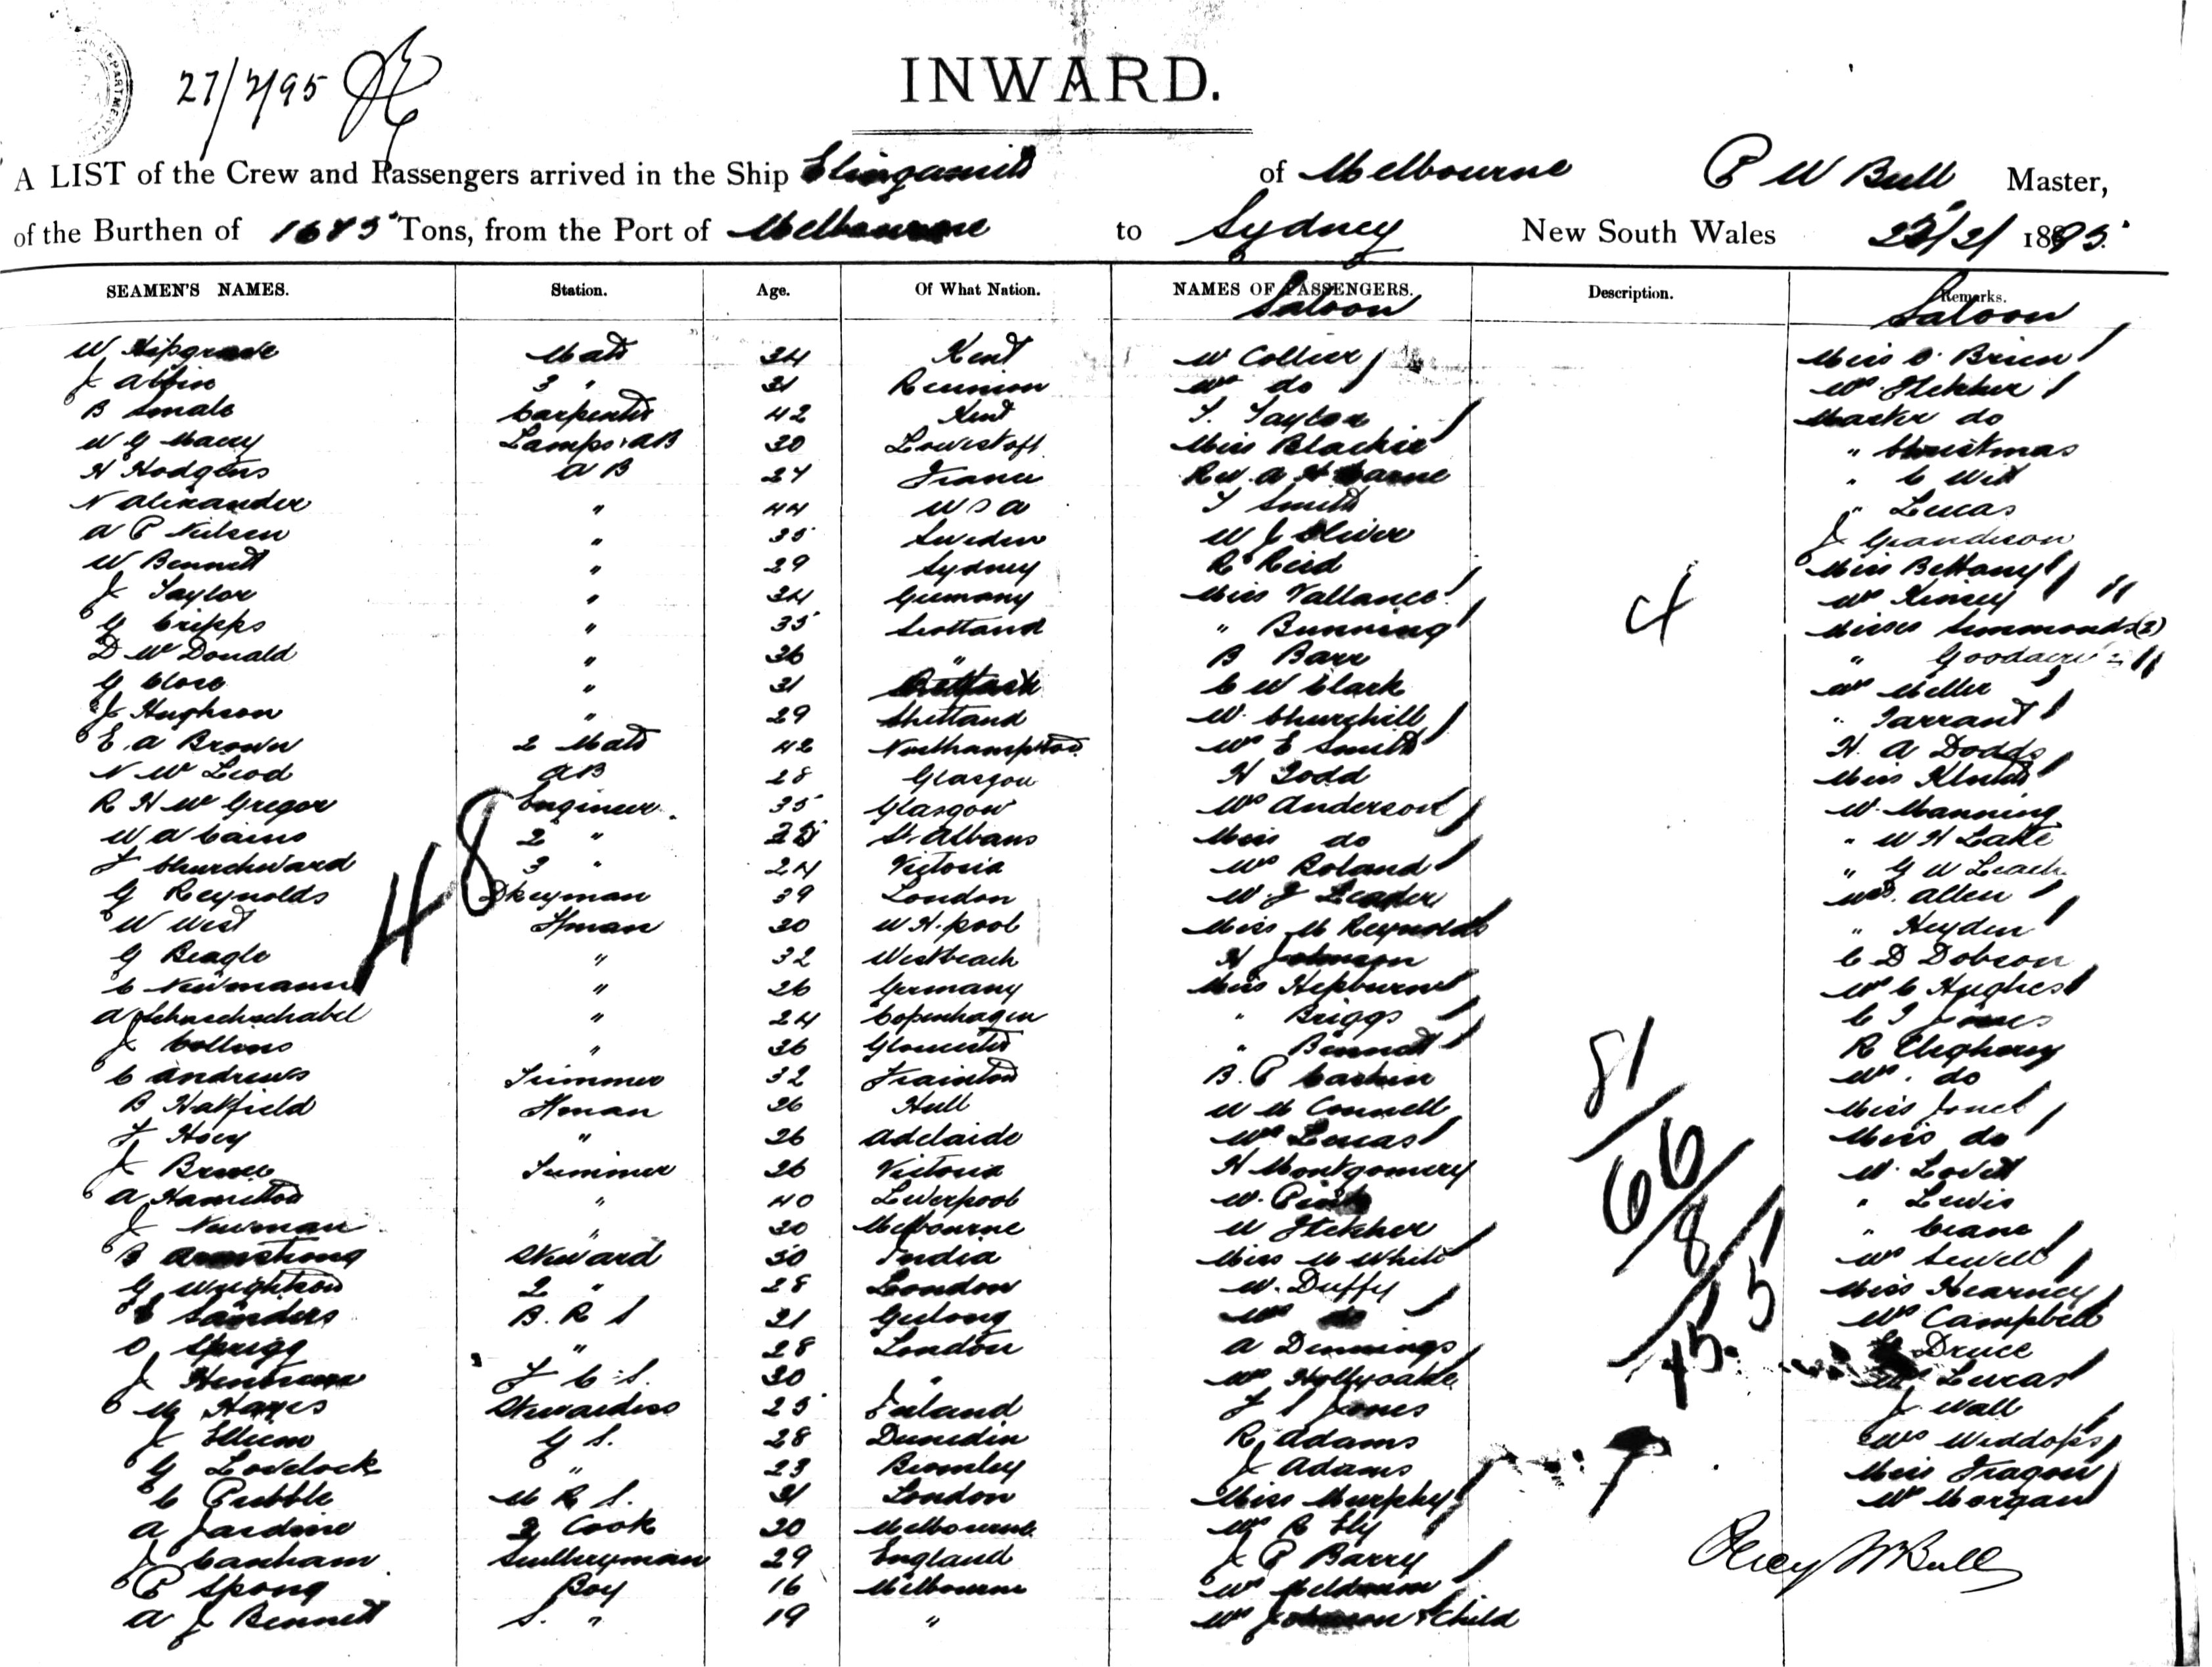 27/2/95
INWARD.
A LIST of the Crew and Passengers arrived in the Ship Elingamite of Melbourne P W Bull Master,
of the Burthen of 1675 Tons, from the Port of Melbourne to Sydney New South Wales 25/2/ 1895.
SEAMEN'S NAMES. Station. Age. Of What Nation. NAMES OF PASSENGERS. Description. Remarks.
Saloon Saloon
W Hipgrave Mate 34 Kent W Collier Miss O'Brien
J Albin 3 " 31 Reunion Mrs do Mrs Fletcher
B Smale Carpenter 42 Kent T. Taylor Master do
W G Macey Lamps & AB 30 Lowestoft Miss Blackie " Christmas
H Hodgens A B 27 France Rev. A H Carne " C Wex
N Alexander " 44 U S A T Smith " Lucas
A P Neilsen " 35 Sweden W J Oliver J Grandison
W Bennett " 29 Sydney R Reid Miss Bettany
J Taylor " 34 Germany Miss Vallance Mrs Kinsey
G Cripps " 35 Scotland " Bunning Misses Simmonds (2)
D McDonald " 36 " B Barr " Goodacre
G Close " 31 C W Clark Mr Meller
J Hughson " 29 Shetland Mr. Churchill " Tarrant
E. A Brown 2 Mate 42 Northampton Mrs E Smith H. A Dodds
N McLeod AB 28 Glasgow H Todd Miss
R H McGregor Engineer 35 Glasgow Mrs Anderson Mr. Manning
W A Cains 2 " St Albans Miss do " W H Lake
F Churchward 3 " 24 Victoria Mrs Boland " G W Leach
G Reynolds Dkeyman 39 London W J Leader Mrs. Allen
W West Fman 30 W H. pool Miss M Reynolds " Heyden
G Beagle " 32 Westbeach H Johnson C D Dobson
C Newmann " 26 Germany Miss Hepburn Mrs C Hughes
A " 24 Copenhagen " Briggs C I Jones
J Collins " 36 Gloucester " Bennett R Cleghorn
C Andrews Trimmer 32 B. P Cashin Mrs. do
B Hatfield Fman 26 Hull W McConnell Miss Jones
F Hoey " 26 Adelaide Mrs Lucas Miss do
J Bruce Trimmer 26 Victoria H Montgomery Mr. Lovett
A Hamilton " 40 Liverpool Mr. " Lewis
J Newman " 30 Melbourne W Fletcher " Crane
B Armstrong Steward 30 India Miss M White Mrs Sewell
G Wrightson 2 " 28 London Mr. Duffy Miss Kearney
E Sanders B. R S 21 Geelong Mrs do Mrs Campbell
O Sprigg " 28 London A Dennings Druce
J F C S. 30 " Mrs Hollyoake Mrs Lucas
M Hayes Stewardess 25 Ireland F S Jones J Wall
J Ellicom G S. 28 Dunedin R Adams Mrs Widdops
G Lovelock " 23 Bromley J Adams Miss Fragon
C Pribble M R S. 21 London Miss Murphy Mrs Morgan
A Jardine 2 Cook 30 Melbourne Mrs R Ely
J Canham Sculleryman 29 England J P Barry
P Spong Boy 16 Melbourne Mrs Meldrum
A J Bennett S. " 19 " Mrs Johnson & Child
48
4
81
66
8
155
Percy W Bull